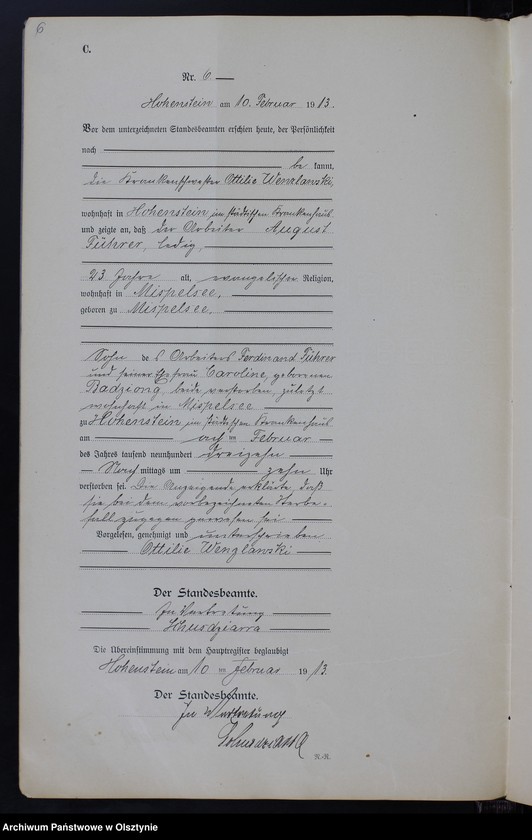 6
C.
Nr. 6
Hohenstein am 10. Februar 1913.
Vor dem unterzeichneten Standesbeamten erschien heute, der Persönlichkeit
nach
be kannt,
die Krankenschwester Ottilie Wenzlawski,
wohnhaft in Hohenstein im städtischen Krankenhaus
und zeigte an, daß der Arbeiter August
Führer, ledig,
23 Jahre alt, evangelischer Religion,
wohnhaft in Mispelsee,
geboren zu Mispelsee,
Sohn des Arbeiters Ferdinand Führer
und seiner Ehefrau Caroline, geborenen
Badziong, beide verstorben, zuletzt
wohnhaft in Mispelsee
zu Hohenstein im städtischen Krankenhaus
am ten Februar
des Jahres tausend neunhundert dreizehn
Nach mittags um zehn Uhr
verstorben sei. Die Anzeigende erklärte, daß
sie bei dem vorbezeichneten Sterbe-
fall zugegen gewesen sei
Vorgelesen, genehmigt und unterschrieben
Ottilie Wenzlawski
Der Standesbeamte.
In Vertretung
Die Übereinstimmung mit dem Hauptregister beglaubigt
Hohenstein am 10 ten Februar 1913.
Der Standesbeamte.
In Vertretung
N.-R.
Archiwum Państwowe w Olsztynie